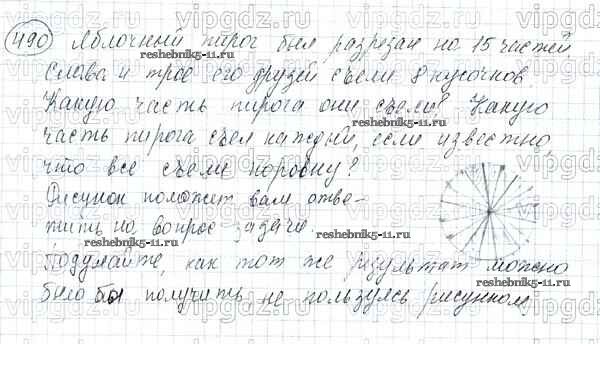 490 Яблочный пирог был разрезан на 15 частей
Слава и трое его друзей съели 8 кусочков.
Какую часть пирога они съели? Какую
часть пирога съел каждый, если известно,
что все съели поровну?
Рисунок поможет вам отве-
тить на вопрос задачи
Подумайте, как тот же результат можно
было бы получить не пользуясь рисунком.
reshebnik5-11.ru
reshebnik5-11.ru
reshebnik5-11.ru
reshebnik5-11.ru
vipgdz.ru